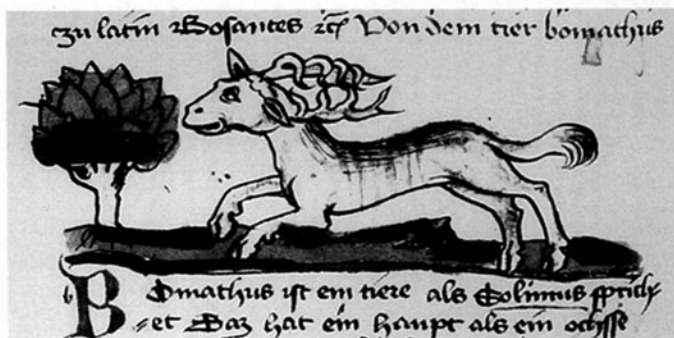 zu latin Bosantes ꝛc̃ Von dem tier bomathus
Bomathus ist ein tiere als Solinus sprich-
et Daz hat ein haupt als ein ochsse